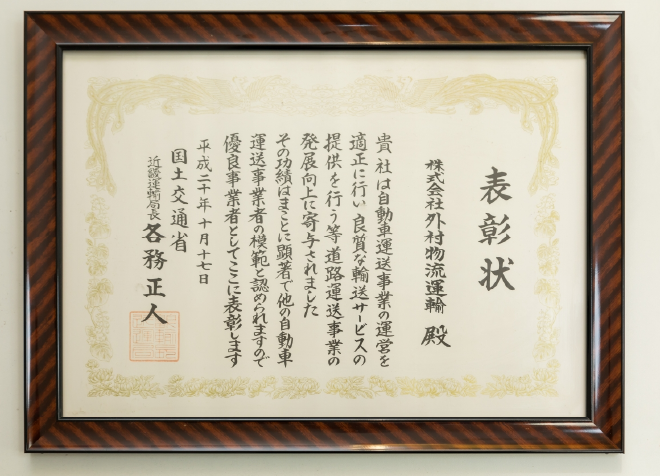 表彰状
株式会社外村物流運輸 殿
貴社は自動車運送事業の運営を
適正に行い良質な輸送サービスの
提供を行う等道路運送事業の
発展向上に寄与されました
その功績はまことに顕著で他の自動車
運送事業者の模範と認められますので
優良事業者としてここに表彰します
平成二十年十月十七日
国土交通省
近畿運輸局長 各務正人